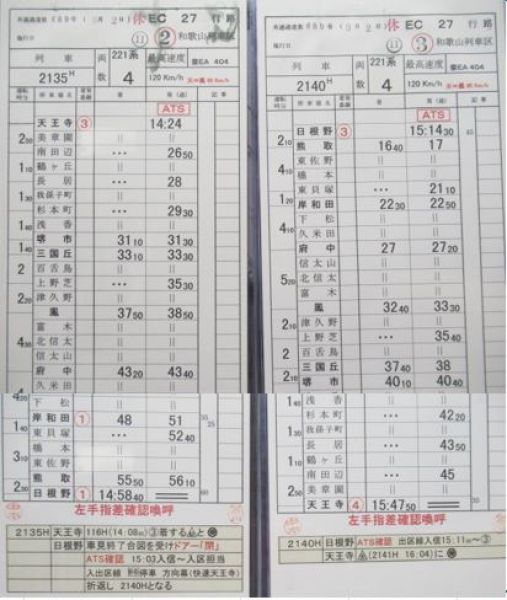 休 EC 27 行路
施行日 ② 和歌山列車区
列車 両数 221系 最高速度 EA 404
2135H 4 120 Km/h
停車場名 着 発(通) 記事
ATS
天王寺 ③ 14:24
2 00 美章園 || ||
南田辺 … 26 50
1 10 鶴ヶ丘 || ||
長居 … 28
1 30 我孫子町 || ||
杉本町 … 29 30
1 40 浅香 || ||
堺市 31 10 31 30
1 40 三国丘 33 10 33 30
2 百舌鳥 || ||
上野芝 … 35 30
2 20 津久野 || ||
鳳 37 50 38 50
富木 || ||
4 30 北信太 || ||
信太山 || ||
府中 43 20 43 40
久米田 || ||
4 20 下松 || ||
岸和田 ① 48 51
1 40 東貝塚 … 52 40
橋本 || ||
3 10 東佐野 || ||
熊取 55 50 56 10
2 30 日根野 ① 14:58 40
左手指差確認喚呼
2135H 天王寺 116H(14:08m)③着する と
日根野 車見終了合図を受けドアー「閉」
ATS確認 15:03入信~入区担当
入出区線 停車 方向幕(快速天王寺)
折返し 2140Hとなる
休 EC 27 行路
施行日 ③ 和歌山列車区
列車 両数 221系 最高速度 EA 404
2140H 4 120 Km/h
停車場名 着 発(通) 記事
ATS
日根野 ③ 15:14 30 45
2 10 熊取 16 40 17
東佐野 || ||
4 10 橋本 || ||
東貝塚 … 21 10
1 20 岸和田 22 30 22 50
下松 || ||
4 10 久米田 || ||
府中 27 27 20
信太山 || ||
5 20 北信太 || ||
富木 || ||
鳳 32 40 33 30
2 10 津久野 || ||
上野芝 … 35 40
2 百舌鳥 || ||
三国丘 37 40 38
2 10 堺市 40 10 40 40
1 40 浅香 || ||
杉本町 … 42 20
1 30 我孫子町 || ||
長居 … 43 50
1 10 鶴ヶ丘 || ||
南田辺 … 45
2 50 美章園 || ||
天王寺 ④ 15:47 50
左手指差確認喚呼
2140H 日根野 ATS確認 出区線入信15:11m~③
天王寺 (2141H 16:04)に